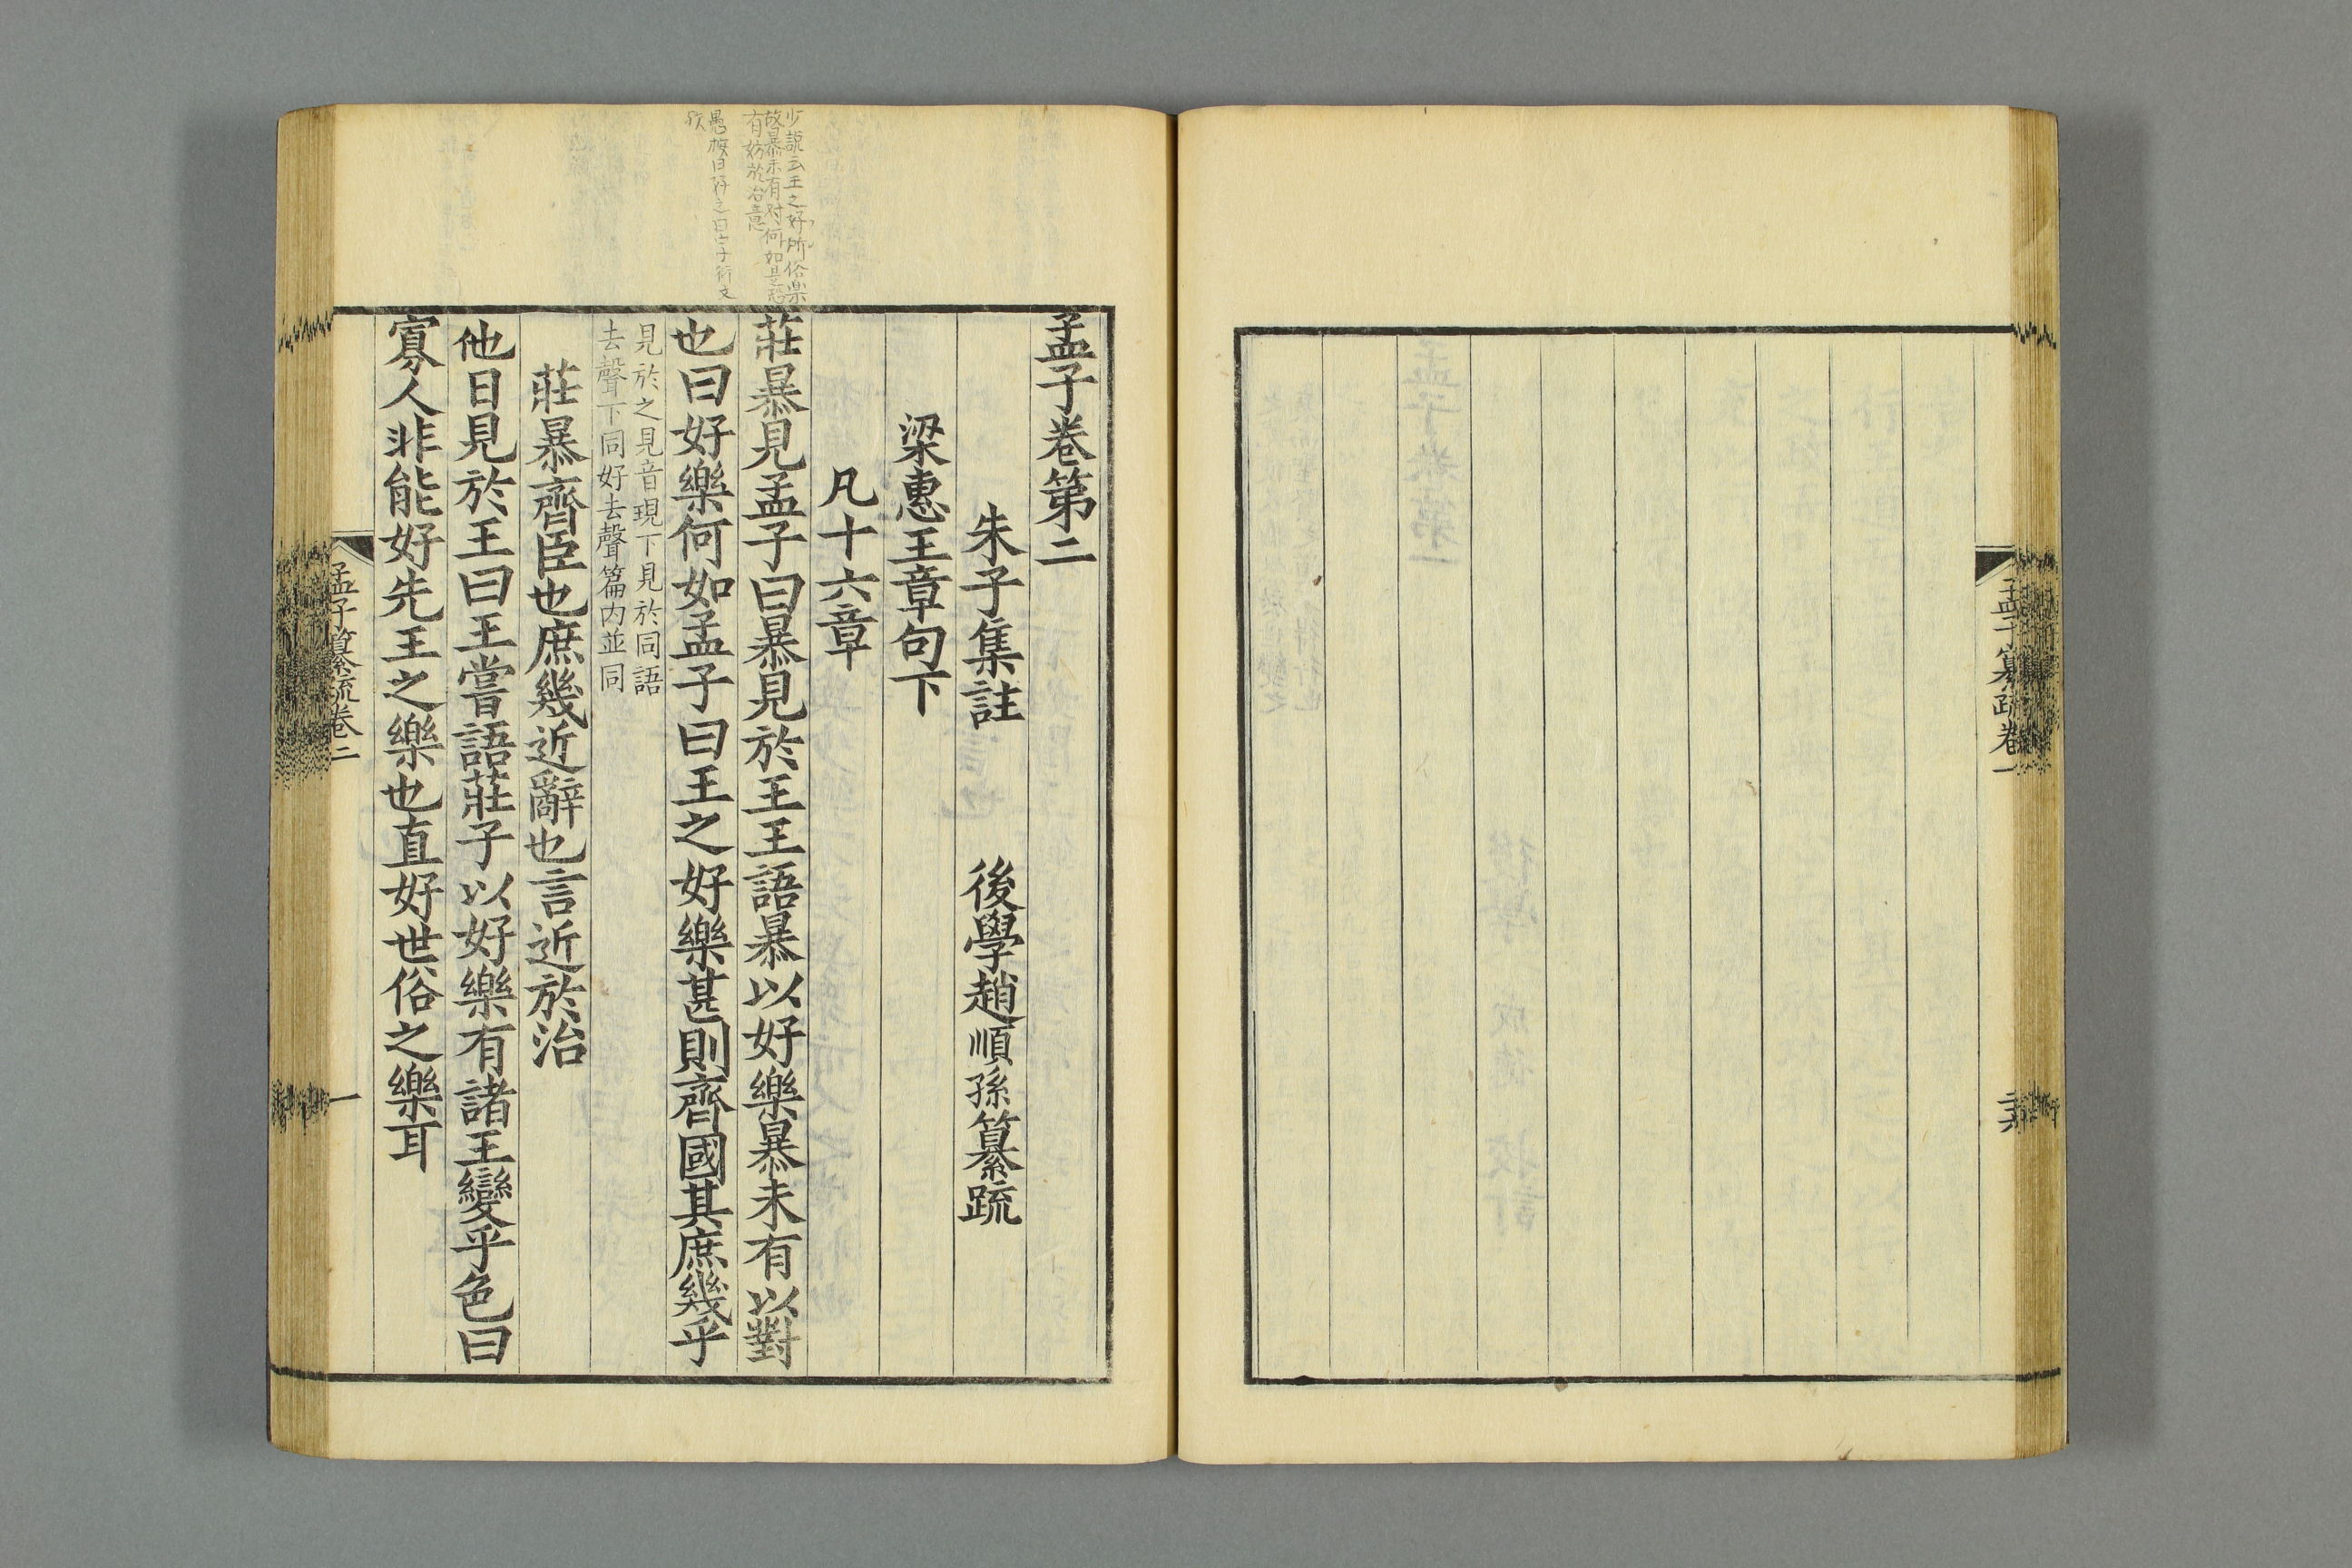 孟子纂疏卷一
孟子卷第二
朱子集註　後學趙順孫纂疏
梁惠王章句下
凡十六章
莊暴見孟子曰暴見於王王語暴以好樂暴未有以對
也曰好樂何如孟子曰王之好樂甚則齊國其庶幾乎
見於之見音現下見於同語
去聲下同好去聲篇內並同
莊暴齊臣也庶幾近辭也言近於治
他日見於王曰王嘗語莊子以好樂有諸王變乎色曰
寡人非能好先王之樂也直好世俗之樂耳
孟子纂疏卷二
一
有妨於治意